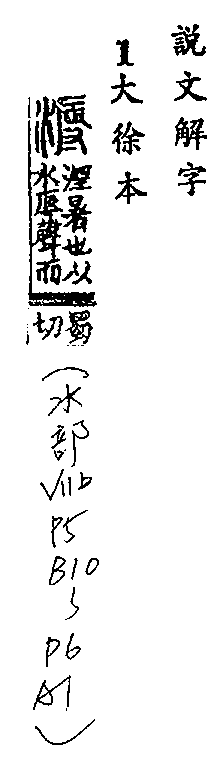 説文解字
1大徐本
溽
溼暑也从
水辱聲而
蜀
切
（水部V11bP5B10〜P6A1）